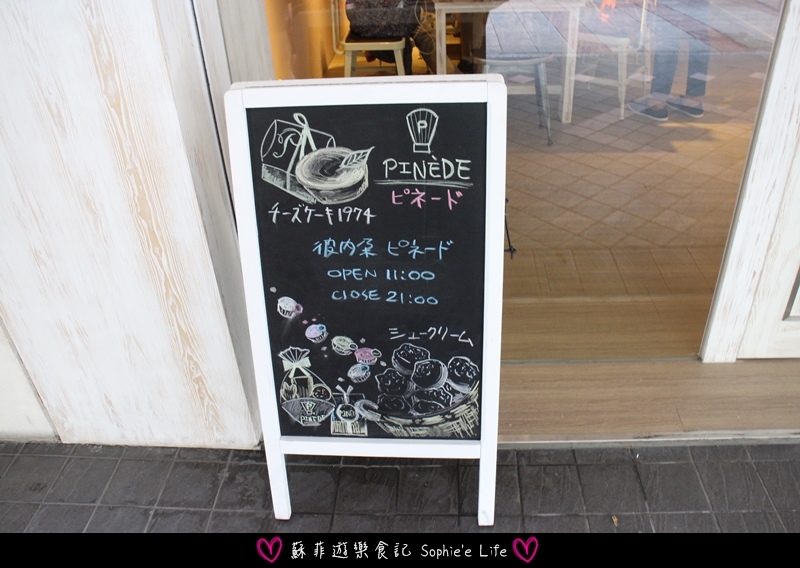 P
PINÈDE
ピネード
チーズケーキ1974
彼内朶 ピネード
OPEN 11:00
CLOSE 21:00
シュークリーム
蘇菲遊樂食記 Sophie'e Life